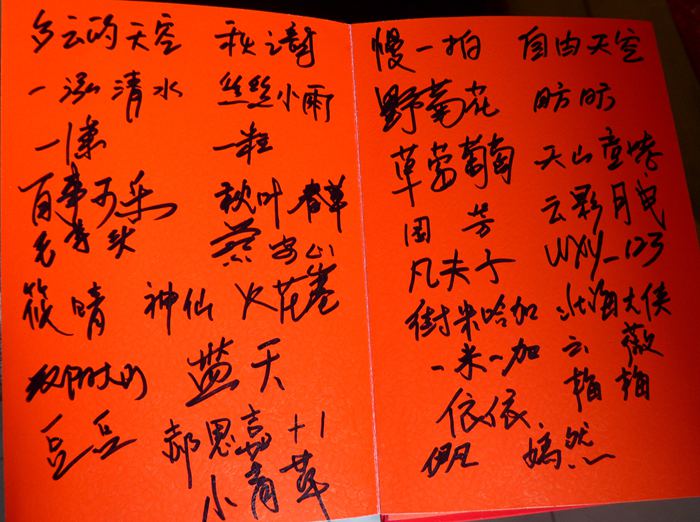 多云的天空 秋之韵
一泓清水 丝丝小雨
一溱 一粒
百事可乐 秋叶 春草
毛芋头 燕宕山
筱晴 神仙 火花塞
蓝天
豆豆 郝思嘉+1
小青草
慢一拍 自由天空
野菊花 昉昉
草莓葡萄 天山童姥
周芳 云影月曳
凡夫子 wxy_123
街米哈加 北海大侠
一米一加 云薇
梅梅
依依.
伊凡 嫣然